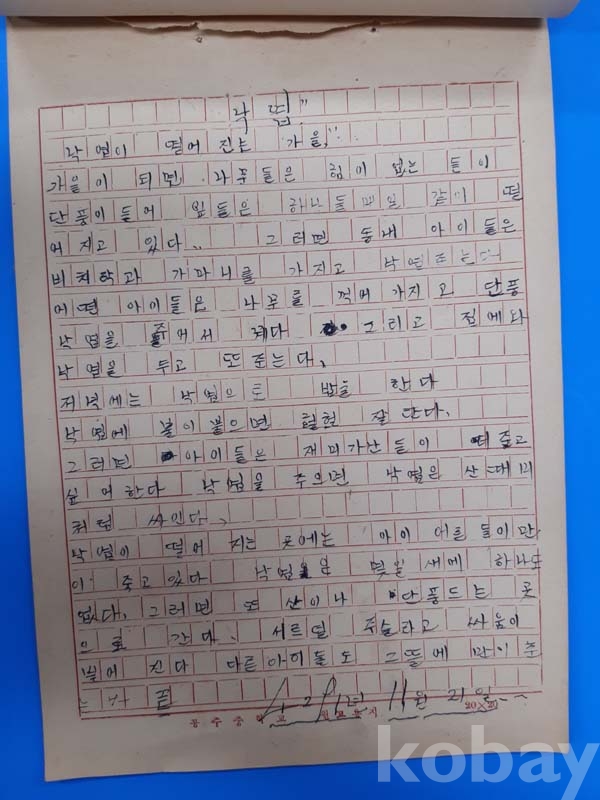 낙엽"
낙엽이 떨어 지는 가을"
가을이 되면 나무들은 힘이 없는 듯이
단풍이들어 잎들은 하나둘 같이 떨
어 지고 있다. 그러면 동내 아이들은
비치락과 가마니를 가지고 낙엽
어떤 아이들은 나무를 꺽어 가지고 단풍
낙엽을 그리고 집에와
낙엽을 두고 또 준는다.
저녁에는 낙엽으로 밥을 한다
낙엽에 불이붙으면 훨훨 잘 탄다.
그러면 아이들은 재미가산 들이 더 줍고
싶어한다 낙엽을 주으면 낙엽은 산대미
처럼 싸인다.
낙엽이 떨어 지는 곳에는 아이 어른 들이만
이 줏고있다 낙엽은 몇일 새에 하나도
없다. 그러면 또 산이나 단풍드는 곳
으로 간다. 서르덜 주슬라고 싸움이
벌어 진다 다른아이들도 그뜰에 만이준
는다 끝
11월 21일
20×20
kobay